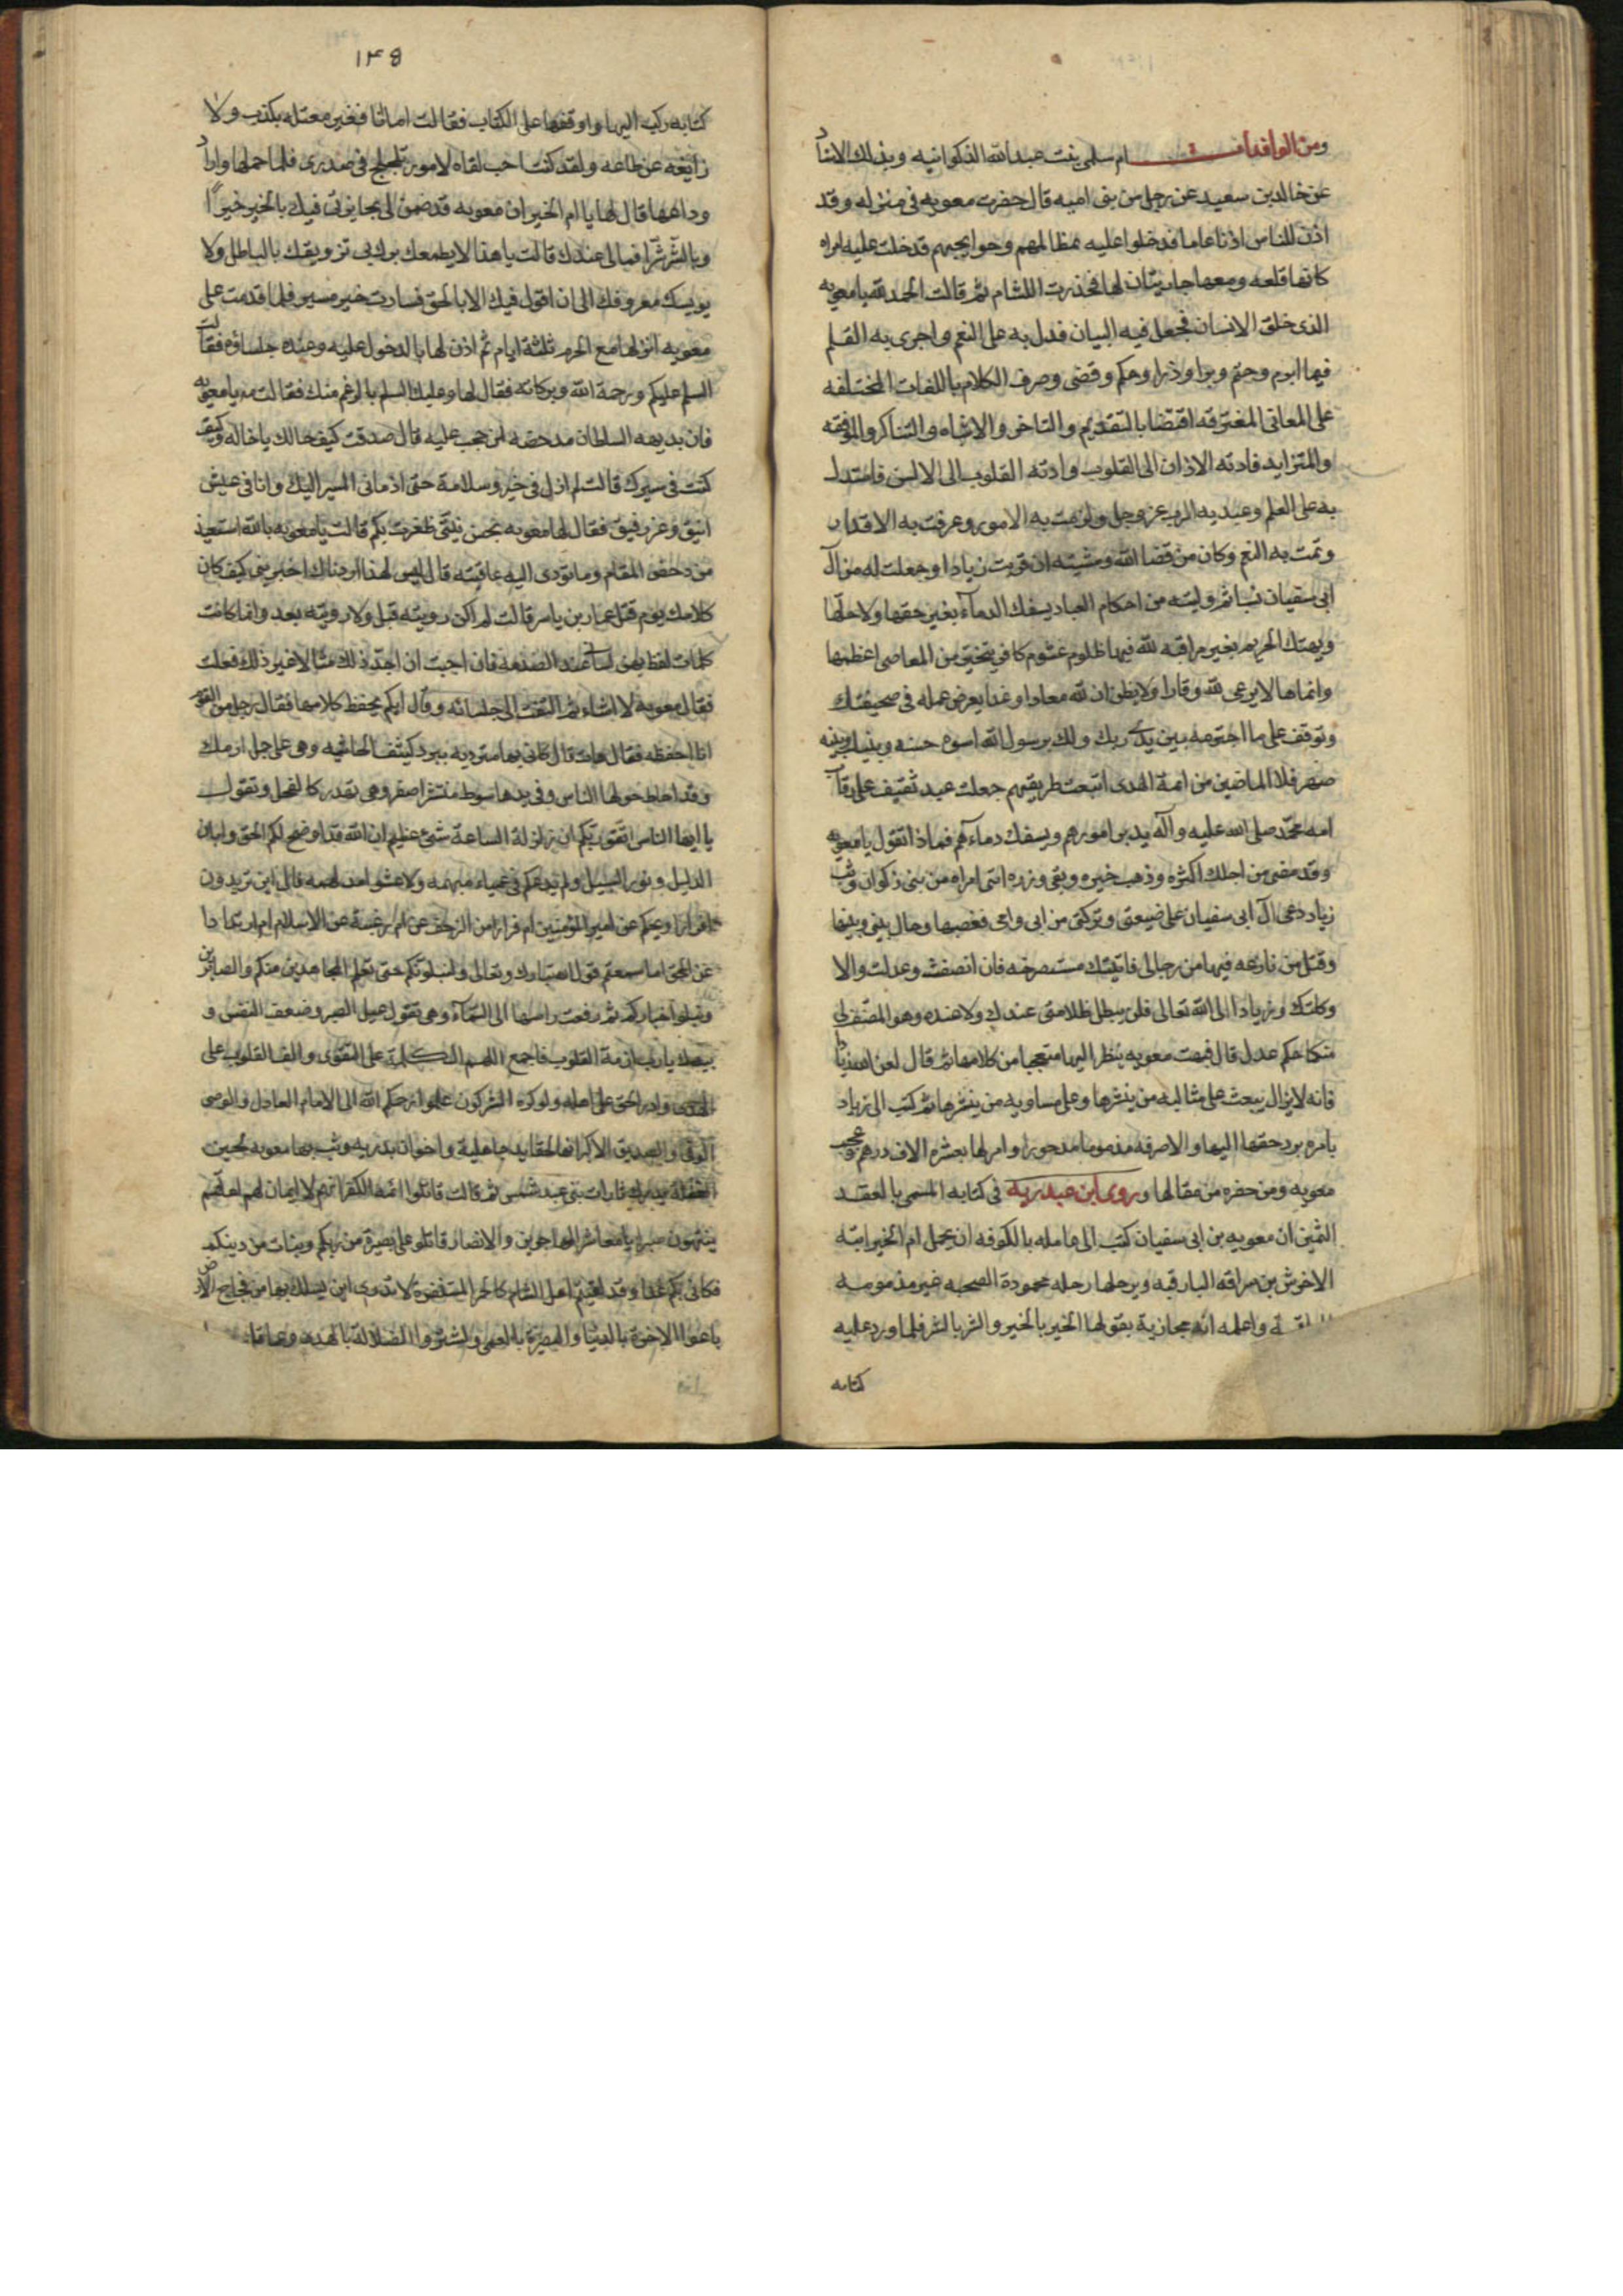 ومن الوافدات ام سلمى بنت عبدالله الذكوانيه وبذلك الاسناد
عن خالد بن سعيد عن رجل من بنى اميه قال حضرت معويه فى منزله وقد
اذن للناس اذنا عاما فدخلوا عليه بمظالمهم وحوايجهم فدخلت عليه امراه
كانها قلعه ومعها جاريتان لها فحذرت اللثام ثم قالت الحمد لله يا معويه
الذى خلق الانسان فجعل فيه البيان فدل به على النعم واجرى به القلم
فيما ابرم وحتم وبرا وذرا وحكم وقضى وصرف الكلام باللغات المختلفه
على المعانى المفترقه اقتضا بالتقديم والتاخر والاشباه والتناكر والموافقه
والتزايد فادته الاذان الى القلوب وادته القلوب الى الالسن فاستدل
به على العلم وعبد به الرب عز وجل وابرمت به الامور وعرفت به الاقدار
وتمت به النعم وكان من قضا الله ومشيته ان قربت زيادا وجعلت له من آل
ابى سفيان نسبا ثم وليته من احكام العباد يسفك الدماء بغير حقها ولا حلها
ويهتك الحريم بغير مراقبه لله فيها ظلوم غشوم كافر يتخير من المعاصى اعظمها
وانماها لا يرعى لله وقارا ولا يظن ان لله معادا وغدا يعرض عمله فى صحيفتك
وتوقف على ما اجترمه بين يدى ربك ولك برسول الله اسوه حسنه وبينك وبينه
صهر فلا الماضين من ائمة الهدى اتبعت طريقهم جعلت عبد ثقيف على رقاب
امه محمد صلى الله عليه وآله يدبر امورهم ويسفك دماءهم فماذا تقول يا معويه
وقد مضى من اجلك اكثره وذهب خيره وبقى وزره انى امراه من بنى ذكوان وثب
زياد دعى آل ابى سفيان على ضيعتى وتركتى من ابى وامى فغصبها وحال بينى وبينها
وقتل من نازعه فيها من رجالى فاتيتك مستصرخه فان انصفت وعدلت والا
وكلتك وزيادا الى الله تعالى فلن يبطل ظلامتى عندك ولا عنده وهو المنصف لى
منكما حكم عدل قال فبهت معويه ينظر اليها متعجبا من كلامها ثم قال لعن الله زيادا
فانه لا يزال يبعث على مثالبه من ينشرها وعلى مساويه من ينثرها ثم كتب الى زياد
يامره برد حقها اليها والا صرفه مذموما مدحورا وامر لها بعشره الاف درهم وعجب
معويه ومن حضره من مقالها وروى ابن عبد ربه فى كتابه المسمى بالعقد
الثمين ان معويه بن ابى سفيان كتب الى عامله بالكوفه ان يحمل ام الخير ابنة
الاخرش بن سراقه البارقيه ورحلها رحله محمودة الصحبه غير مذمومه
واعلمه انه مجازيه بقولها الخير بالخير والشر بالشر فلما ورد عليه
كتابه
١٤٥
كتابه ركب اليها واوقفها على الكتاب فقالت اما انا فغير معتله بكذب ولا
زايغه عن طاعه ولقد كنت احب لقاه لامور تجلجل فى صدرى فلما حملها واراد
وداعها قال لها يا ام الخير ان معويه قد ضمن لى يجازينى فيك بالخير خيرا
وبالشر شرا فمالى عندك قالت يا هذا لا يطمعك برك بى تزويقك بالباطل ولا
يويسك معروفك الى ان اقول فيك الا بالحق فسارت خير مسير فلما قدمت على
معويه انزلها مع الحرم ثلثة ايام ثم اذن لها بالدخول عليه وعنده جلساؤه فقالت
السلم عليكم ورحمة الله وبركاته فقال لها وعليك السلم بالرغم منك فقالت مه يا معويه
فان بديهه السلطان مدحضه لمن يحب عليه قال صدقت كيف حالك يا خاله وكيف
كنت فى سيرك قالت لم ازل فى خير وسلامة حتى ادنانى المسير اليك وانا فى عيش
انيق وعز رفيق فقال لها معويه بحسن نيتى ظفرت بكم قالت يا معويه بالله استعيذ
من دحض المقام وما تودى اليه عاقبته قال ليس لهذا اردناك اخبرينى كيف كان
كلامك يوم قتل عمار بن ياسر قالت لم اكن رويته قبل ولا رويته بعد وانما كانت
كلمات لفظهن لسانى عند الصدمه فان احببت ان اجدد ذلك مثالا غير ذلك فعلت
فقال معويه لا اشاء ثم التفت الى جلسائه وقال ايكم يحفظ كلامها فقال رجل من القوم
انا احفظه فقال هات قال كانى بها مترديه ببرد كثيف الحاشيه وهى على جمل ارمك
وقد احاط حولها الناس وفى يدها سوط منتشر اصفر وهى تهدر كالفحل وتقول
يا ايها الناس اتقوا ربكم ان زلزلة الساعة شئ عظيم ان الله قد اوضح لكم الحق وابان
الدليل ونور السبيل ولم يدعكم فى عمياء مبهمه ولا عشواء مدلهمه فالى اين تريدون
افرارا ويحكم عن امير المؤمنين ام فرارا من الزحف عن ام رغبة عن الاسلام ام ارتدادا
عن الحق اما سمعتم قول الله تبارك وتعالى ولنبلونكم حتى نعلم المجاهدين منكم والصابرين
ونبلو اخباركم ثم رفعت راسها الى السماء وهى تقول عيل الصبر وضعف النفس و
بيدك يا رب ازمة القلوب فاجمع اللهم الكلمة على التقوى والف القلوب على
الهدى وادر الحق على اهله ولو كره المشركون هلموا رحمكم الله الى الامام العادل والوصى
الوفى والصديق الاكبر انها احقاد جاهلية واحقاد بدريه وثب بها معويه لحين
الغفلة ليدرك ثارات بنى عبد شمس ثم قالت قاتلوا ائمة الكفر انهم لا ايمان لهم لعلهم
ينتهون صبرا يا معاشر المهاجرين والانصار قاتلوا على بصيرة من ربكم وبنات من دينكم
فكانى بكم غدا وقد لقيتم اهل الشام كالحمر المستنفرة لا تدرى اين يسلك بها من فجاج الارض
باعوا الاخرة بالدنيا والبصيرة بالعمى واشتروا الضلالة بالهدى وعما قليل